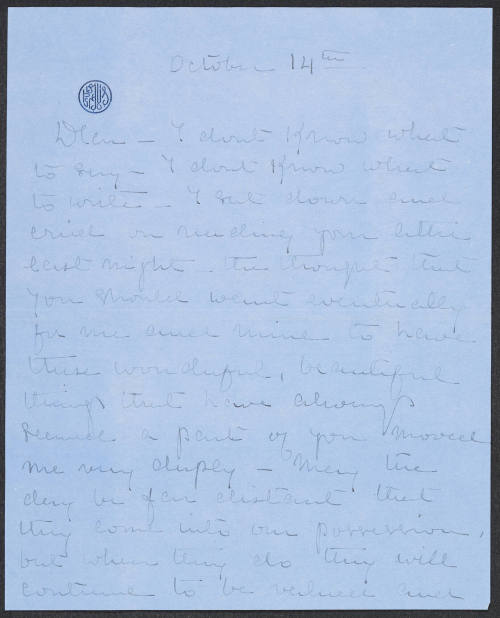 October 14th
Dear – I dont know what
to say – I dont know what
to write – I sat down and
cried on reading your letter
last night. The thought that
you should want eventually
for me and mine to have
these wonderful, beautiful
things that have always
seemed a part of you moved
me very deeply – May the
day be far distant that
they come into our possession,
but when they do they will
continue to be valued and